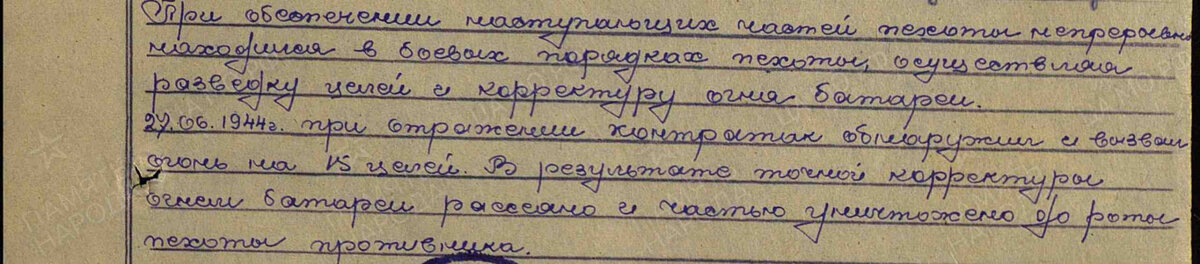 При обеспечении наступающих частей пехоты непрерывно
находился в боевых порядках пехоты, осуществляя
разведку целей и корректуру огня батареи.
27.06.1944г. при отражении контратак обнаружил и вызвал
огонь на 15 целей. В результате точной корректуры
огнем батареи рассеяно и частью уничтожено до роты
пехоты противника.